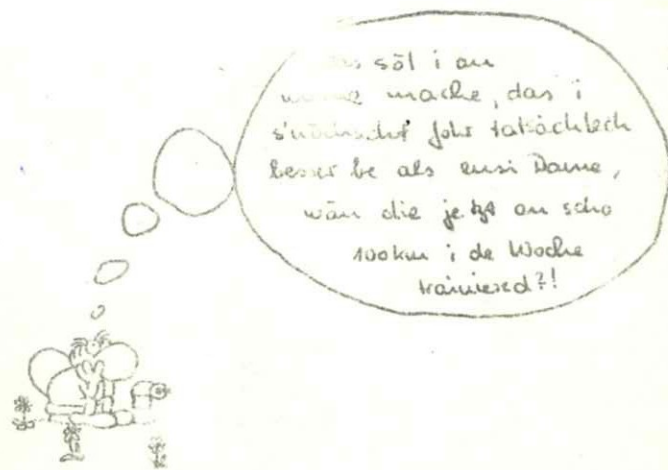 söl i au
mache, das i
s'nöchscht Johr tatsächlech
besser be als eusi Dame,
wän die jetzt au scho
100km i de Woche
trainiered?!